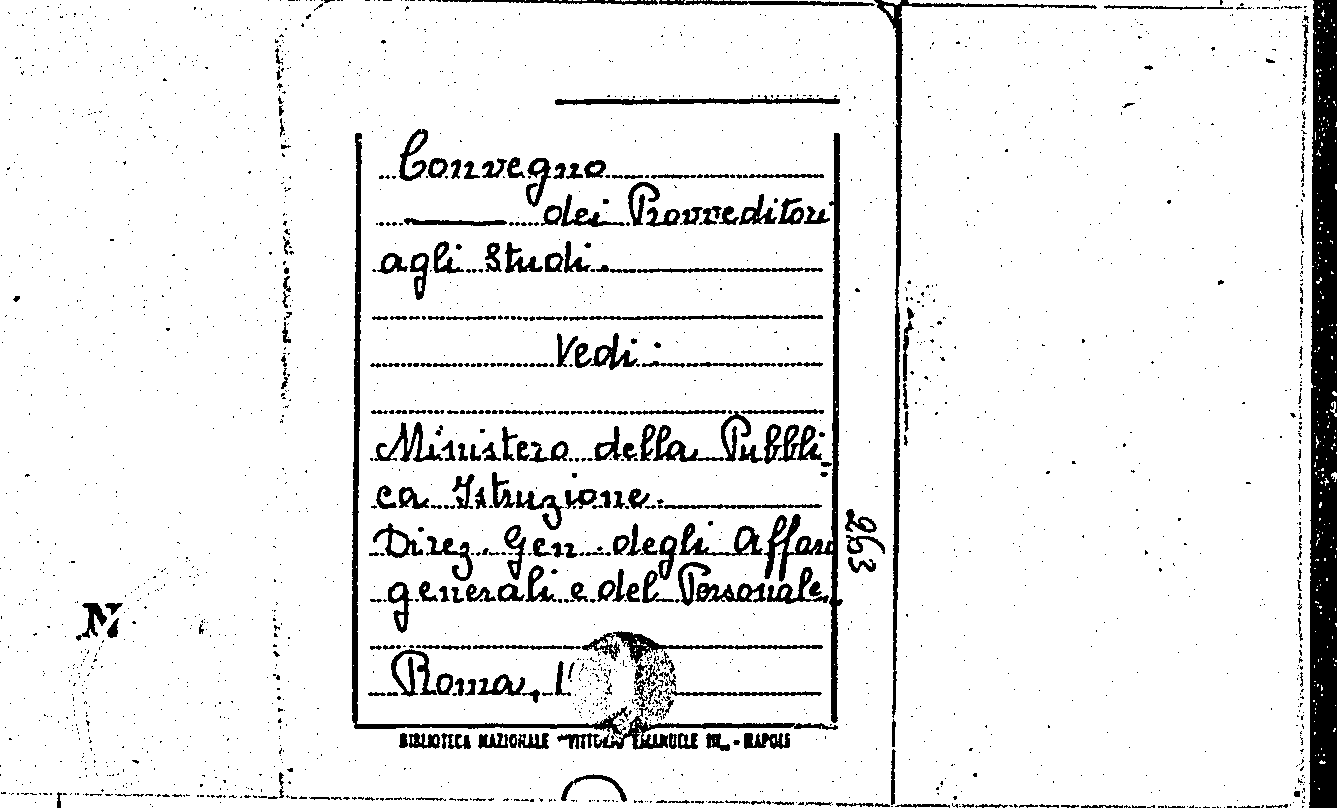 Convegno
dei Provveditori
agli Studi.
Vedi:
Ministero della Pubbli=
ca Istruzione.
Direz. Gen. degli Affari
generali e del Personale.
Roma,
BIBLIOTECA NAZIONALE "VITTORIO EMANUELE III" - NAPOLI
263
N